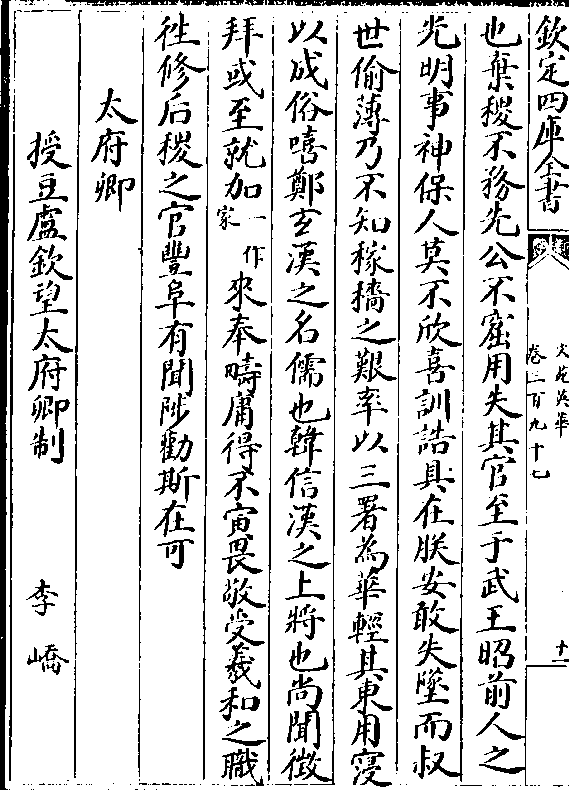 欽定四庫全書
文苑英華
卷三百九十七
十一
也棄稷不務先公不窋用失其官至于武王昭前人之
光明事神保人莫不欣喜訓誥具在朕安敢失墜而叔
世偷薄乃不知稼穡之艱率以三署為華輕其東用寖
以成俗嘻鄭玄漢之名儒也韓信漢之上將也尚聞徵
拜或至就加一作家來奉疇庸得不寅畏敬受羲和之職
徃修后稷之官豐阜有聞陟勸斯在可
太府卿
授豆盧欽望太府卿制 李嶠